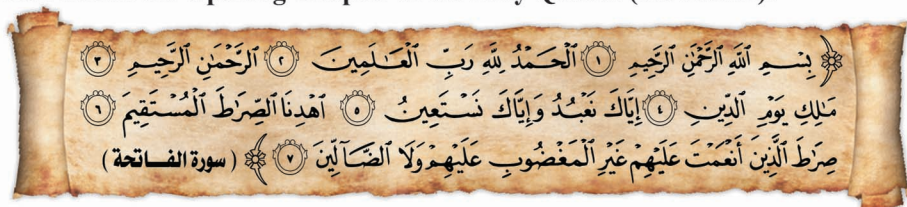 ﴿ بِسْمِ ٱللَّهِ ٱلرَّحْمَٰنِ ٱلرَّحِيمِ ١ ٱلْحَمْدُ لِلَّهِ رَبِّ ٱلْعَٰلَمِينَ ٢ ٱلرَّحْمَٰنِ ٱلرَّحِيمِ ٣
مَٰلِكِ يَوْمِ ٱلدِّينِ ٤ إِيَّاكَ نَعْبُدُ وَإِيَّاكَ نَسْتَعِينُ ٥ ٱهْدِنَا ٱلصِّرَٰطَ ٱلْمُسْتَقِيمَ ٦
صِرَٰطَ ٱلَّذِينَ أَنْعَمْتَ عَلَيْهِمْ غَيْرِ ٱلْمَغْضُوبِ عَلَيْهِمْ وَلَا ٱلضَّآلِّينَ ٧ ﴾ ( سورة الفاتحة )